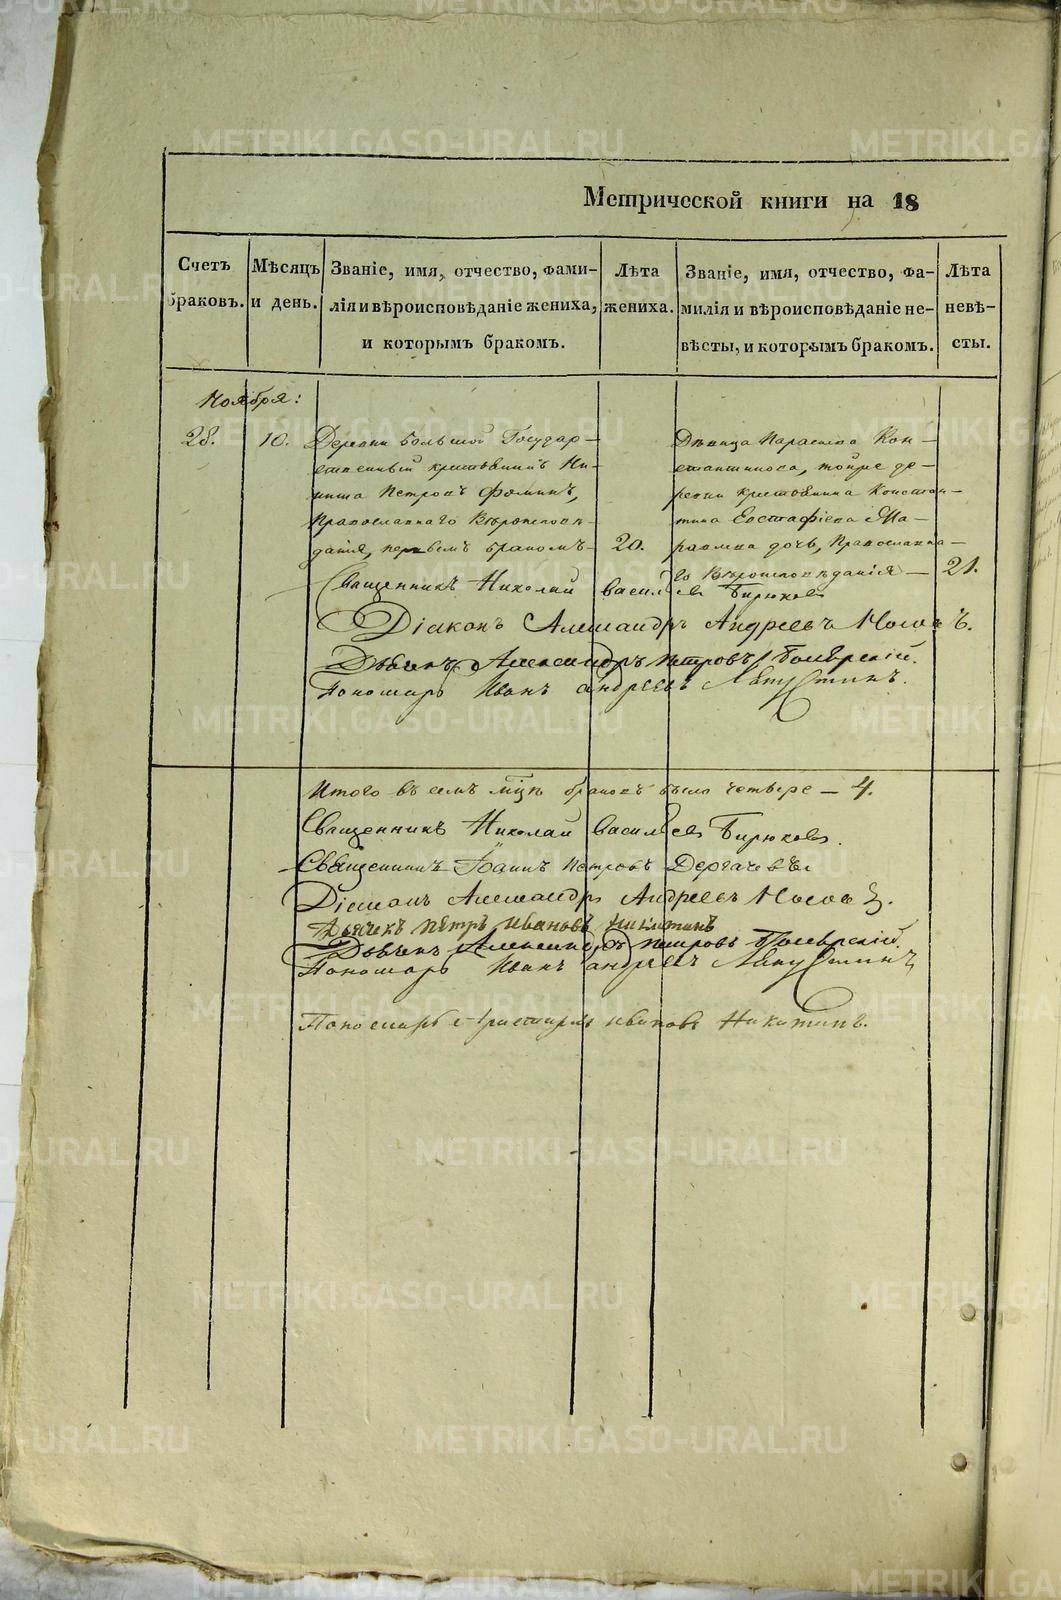 Метрической книги на 18
Счетъ браковъ.
Мѣсяцъ и день.
Званіе, имя, отчество, фами-
лія и вѣроисповѣданіе жениха,
и которымъ бракомъ.
Лѣта жениха.
Званіе, имя, отчество, фа-
милія и вѣроисповѣданіе не-
вѣсты, и которымъ бракомъ.
Лѣта невѣ-
сты.
Ноября:
28.
10.
Деревни Большой Государ-
ственный крестьянинъ Ни-
кита Петровъ Фоминъ,
Православнаго Вѣроисповѣ-
данія, первымъ бракомъ-
20.
Дѣвица Параскева Кон-
стантинова, тойже де-
ревни крестьянина Констан-
тина Евстафіева
дочь, Православна-
го Вѣроисповѣданія —
21.
Священникъ Николай Васильевъ Бирюковъ
Діаконъ Александръ Андреевъ Носовъ.
Дьячекъ Александръ Петровъ
Пономарь Иванъ Андреевъ
Итого въ семъ м͠цѣ браковъ было четыре — 4.
Священникъ Николай Васильевъ Бирюковъ.
Священникъ Іоаннъ Петровъ Дергачевъ
Діаконъ Александръ Андреевъ Носовъ.
Дьячекъ Петръ Ивановъ Никитинъ
Дьячекъ Александръ Петровъ
Пономарь Иванъ Андреевъ
Пономарь Ивановъ Никитинъ.
METRIKI.GASO-URAL.RU